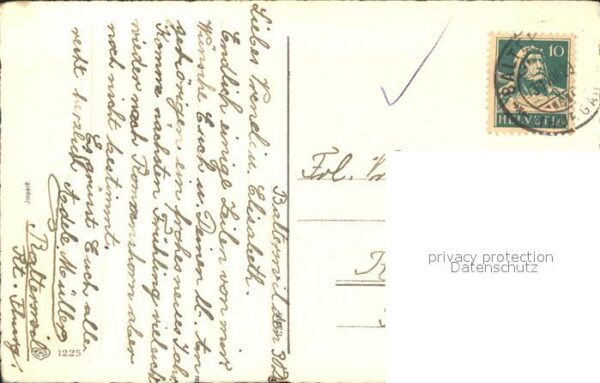 Balterswil den 30
Liebes Vreneli u. Elisabeth.
Endlich einige Zeilen von mir
Wünsche Euch u. Deinen lb. An-
gehörigen ein frohes neues Jahr
Komme nächsten Frühling vieleicht
wieder nach Romanshorn aber
noch nicht bestimmt.
Es grüsst Euch alle
recht herzlich Adele Müller
Balterswil
Kt. Thurg.
Import.
1225
10
HELVETIA
BALT
Frl.
privacy protection
Datenschutz